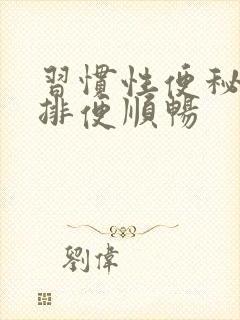 習慣性便秘
排便順暢
劉偉